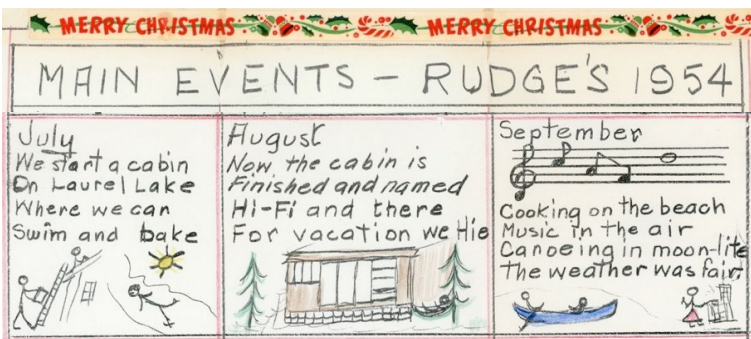 MERRY CHRISTMAS MERRY CHRISTMAS
MAIN EVENTS - RUDGE'S 1954
July
We start a cabin
On Laurel Lake
Where we can
Swim and bake
August
Now the cabin is
Finished and named
Hi-Fi and there
For vacation we Hie
September
Cooking on the beach
Music in the air
Canoeing in moon-lite
The weather was fair.